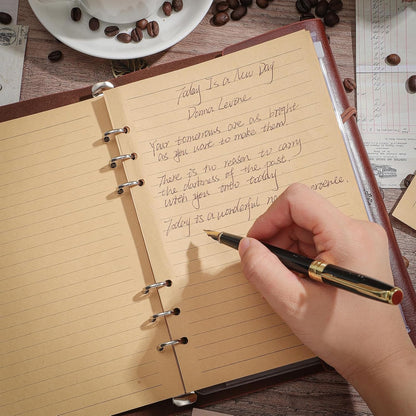 Today Is a New Day
Donna Levine
Your tomorrows are as bright
as you want to make them
There is no reason to carry
the darkness of the past
with you into today
Today is a wonderful